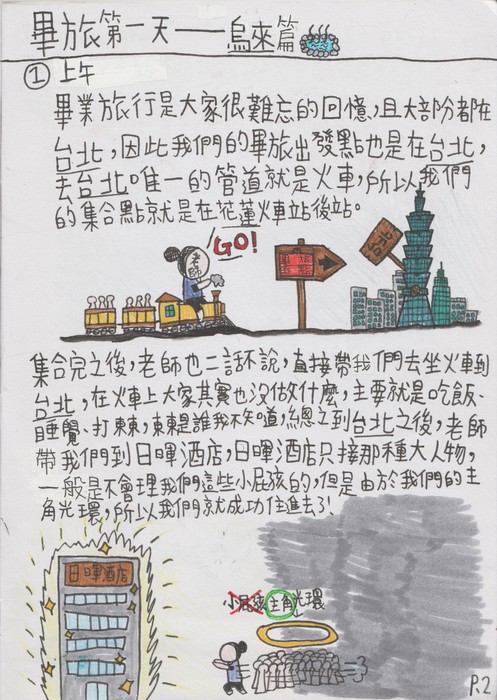 畢旅第一天——烏來篇
①上午
畢業旅行是大家很難忘的回憶,且大部份都在
台北,因此我們的畢旅出發點也是在台北,
去台北唯一的管道就是火車,所以我們
的集合點就是在花蓮火車站後站。
GO!
老師
畢旅
台北
集合完之後,老師也二話不說,直接帶我們去坐火車到
台北,在火車上大家其實也沒做什麼,主要就是吃飯、
睡覺、打東東,東東是誰我不知道,總之到台北之後,老師
帶我們到日暉酒店,日暉酒店只接那種大人物,
一般是不會理我們這些小屁孩的,但是由於我們的主
角光環,所以我們就成功住進去了!
日暉酒店
小屁孩主角光環
P.2